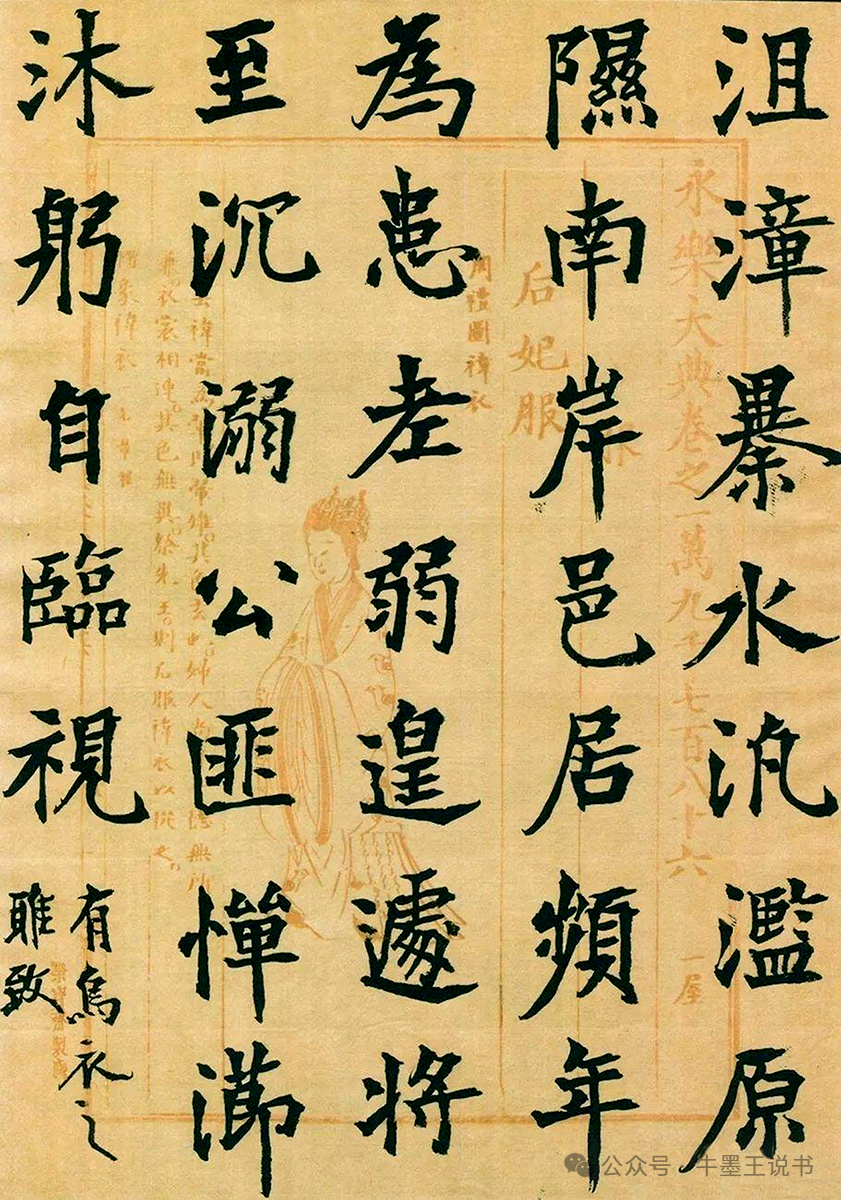 沮漳㬥水汎濫原
隰南岸邑居頻年
為患老弱遑遽將
至沉溺公匪憚瀄
沐躬自臨視
有烏衣之
睢致
永樂大典卷之一萬九千七百八十六 一屋
后妃服
周禮圖褘衣
公众号 · 牛墨王说书